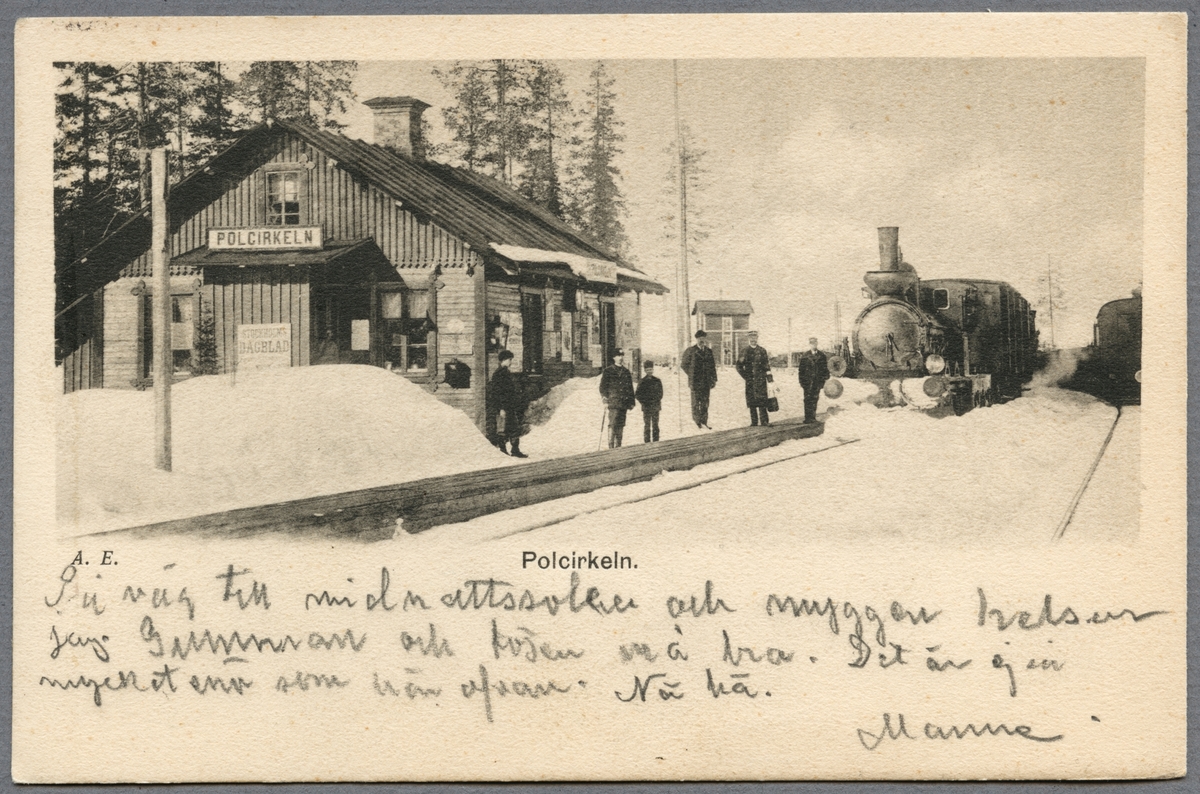 POLCIRKELN
STOCKHOLMS
DAGBLAD
A. E.
Polcirkeln.
På väg till midnattssolen och myggen helsar
jag. Gumman och tösen må bra. Det är ej
mycket snö som här ofvan. Nå hå.
Manne